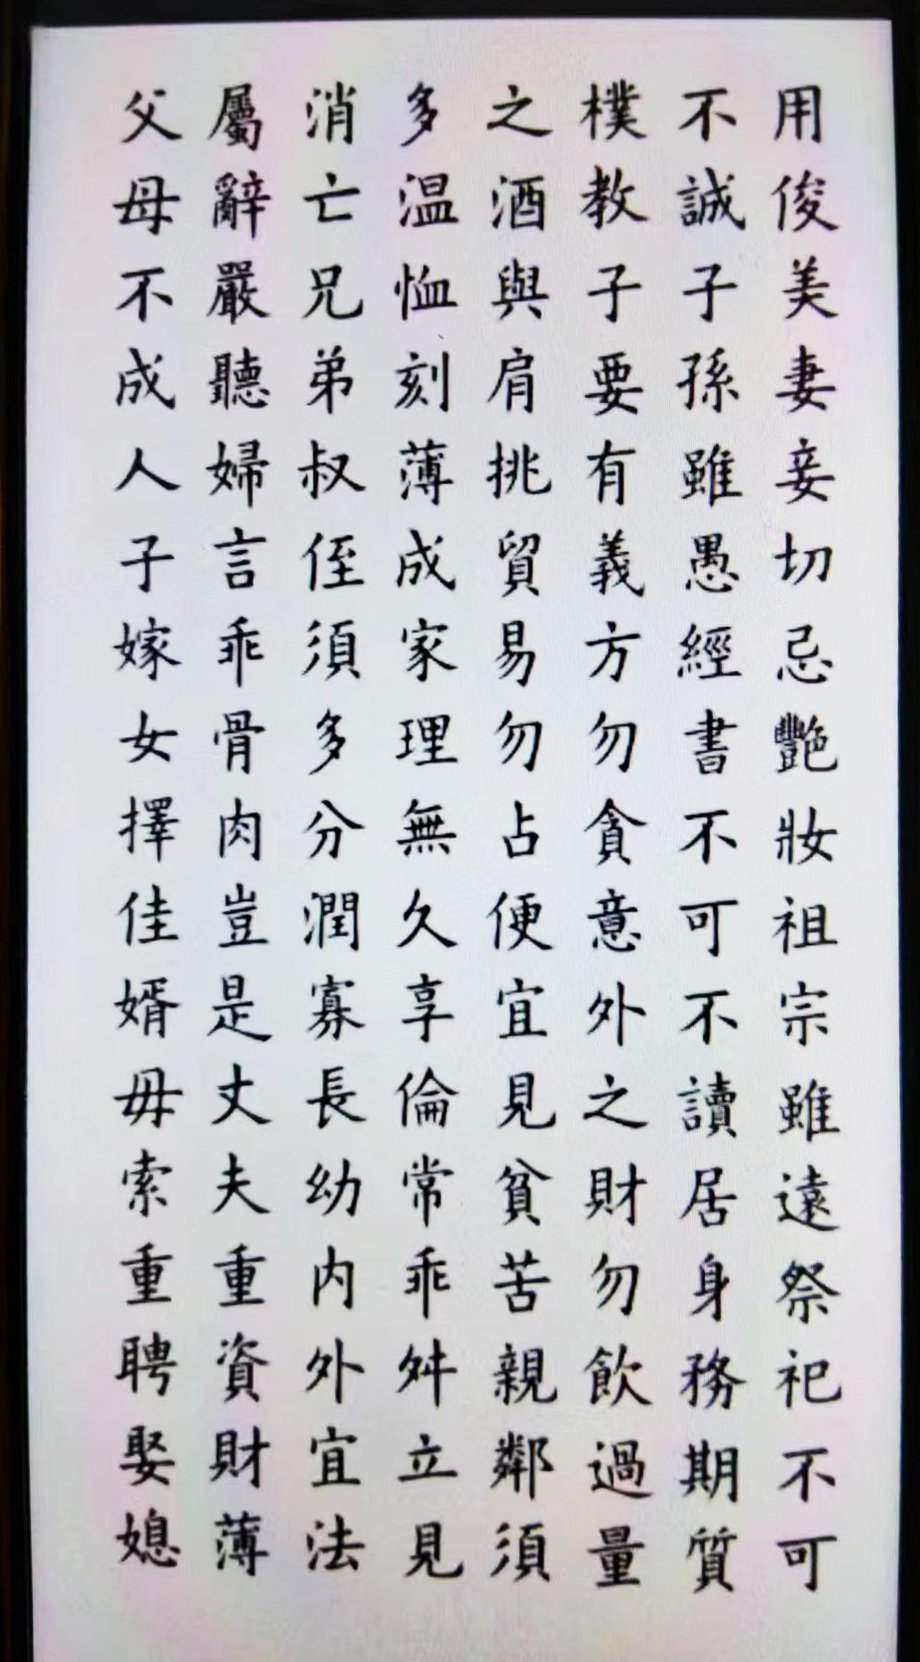 用俊美妻妾切忌艷妝祖宗雖遠祭祀不可
不誠子孫雖愚經書不可不讀居身務期質
樸教子要有義方勿貪意外之財勿飲過量
之酒與肩挑貿易勿占便宜見貧苦親鄰須
多温恤刻薄成家理無久享倫常乖舛立見
消亡兄弟叔侄須多分潤寡長幼内外宜法
屬辭嚴聽婦言乖骨肉豈是丈夫重資財薄
父母不成人子嫁女擇佳婿毋索重聘娶媳